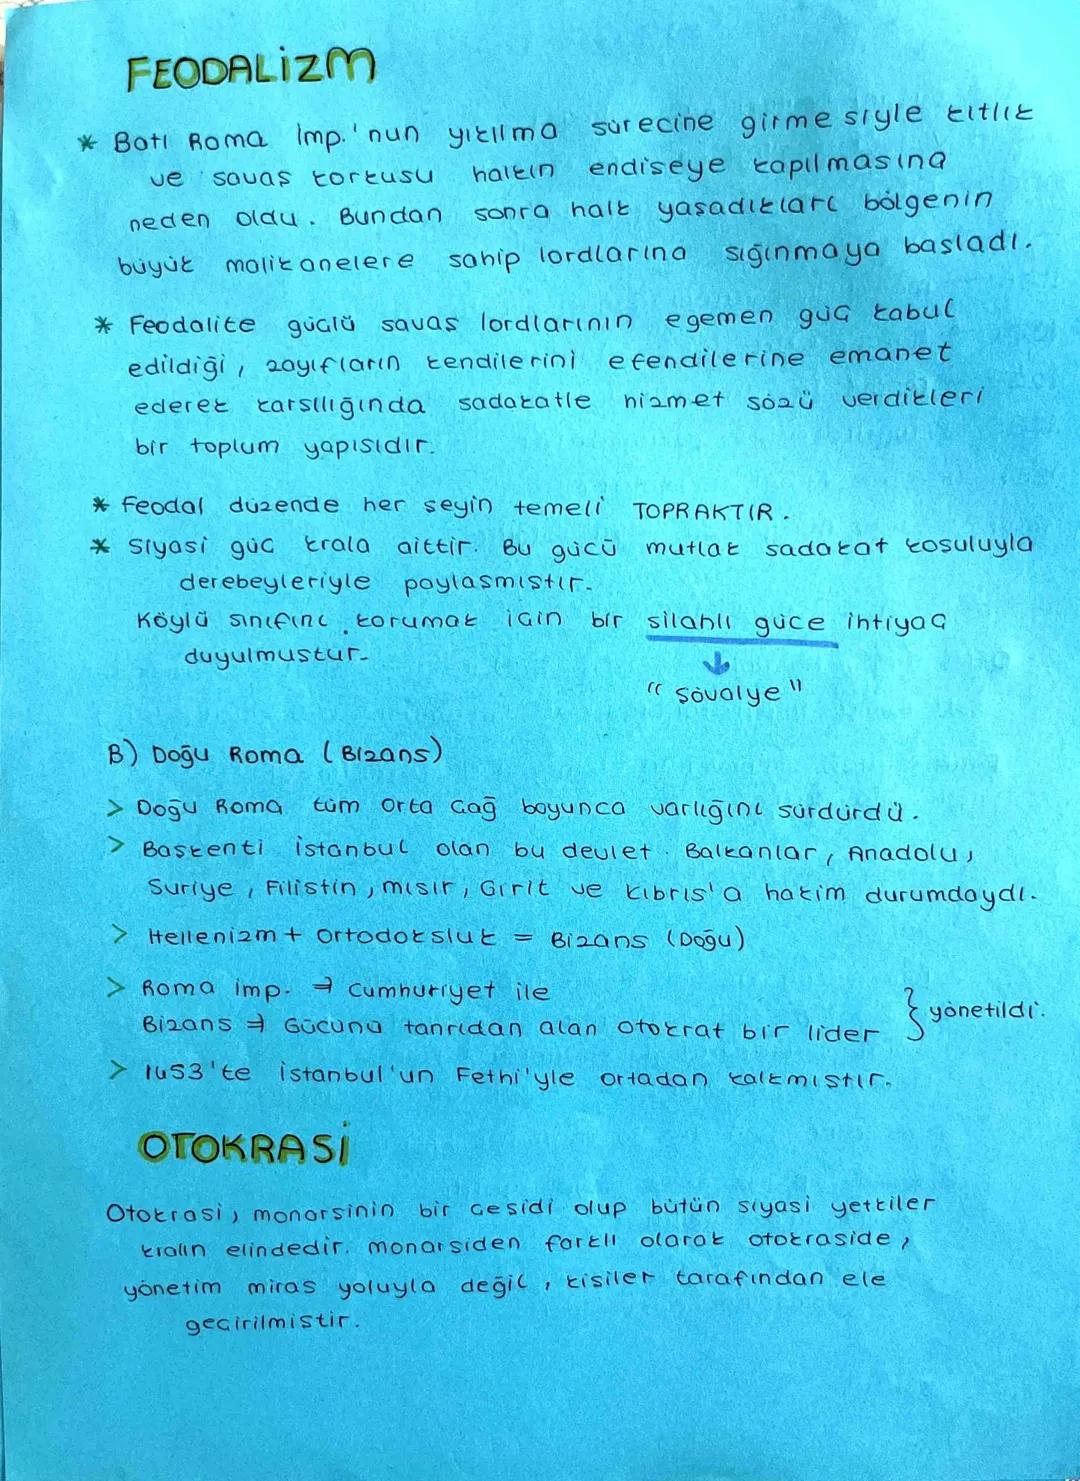 FEODALİZM
* Batı Roma İmp.'nun yıkılma sürecine girmesiyle kıtlık
ve savaş korkusu halkın endişeye kapılmasına
neden oldu. Bundan sonra halk yaşadıkları bölgenin
büyük malikanelere sahip lordlarına sığınmaya başladı.
* Feodalite güçlü savaş lordlarının egemen güç kabul
edildiği, zayıfların kendilerini efendilerine emanet
ederek karşılığında sadakatle hizmet sözü verdikleri
bir toplum yapısıdır.
* Feodal düzende her şeyin temeli TOPRAKTIR.
* Siyasi güç krala aittir. Bu gücü mutlak sadakat koşuluyla
derebeyleriyle paylaşmıştır.
Köylü sınıfını korumak için bir silahlı güce ihtiyaç
duyulmuştur.
↓
"Şövalye"
B) Doğu Roma (Bizans)
> Doğu Roma tüm Orta Çağ boyunca varlığını sürdürdü.
> Başkenti İstanbul olan bu devlet. Balkanlar, Anadolu,
Suriye, Filistin, mısır, Girit ve Kıbrıs'a hakim durumdaydı.
> Hellenizm + Ortodoksluk = Bizans (Doğu)
> Roma imp. ⇒ Cumhuriyet ile
Bizans ⇒ Gücünü tanrıdan alan otokrat bir lider } yönetildi.
> 1453'te İstanbul'un Fethi'yle ortadan kalkmıştır.
OTOKRASİ
Otokrasi, monarşinin bir çeşidi olup bütün siyasi yetkiler
kralın elindedir. monarşiden farklı olarak otokraside,
yönetim miras yoluyla değil, kişiler tarafından ele
geçirilmiştir.